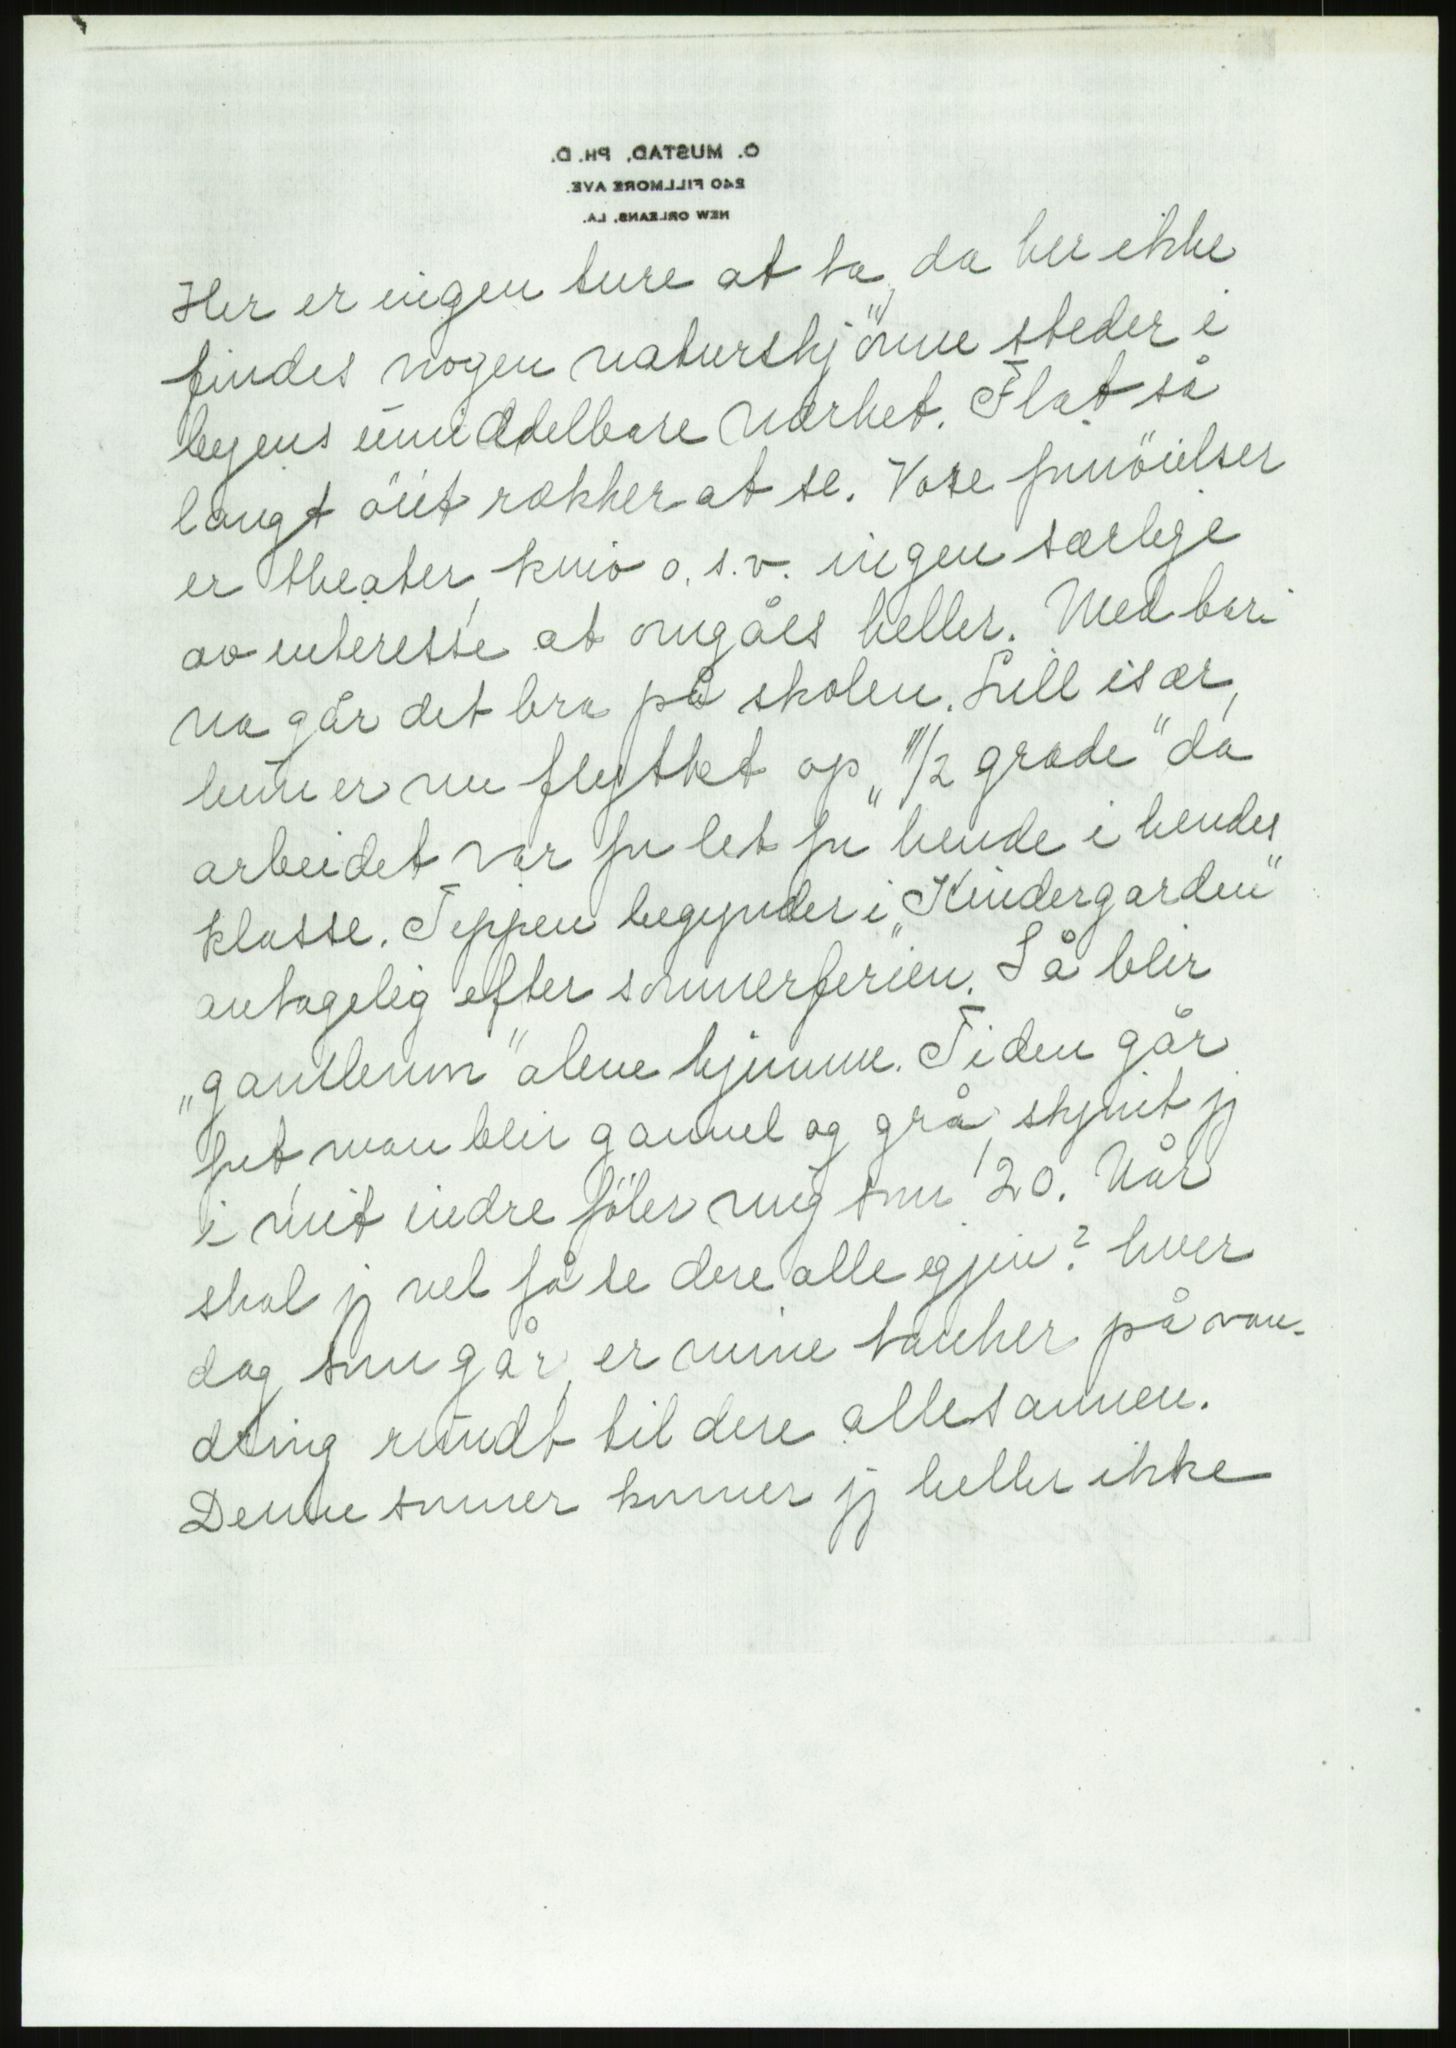 O. MUSTAD, PH. D.
240 FILLMORE AVE.
NEW ORLEANS, LA.
Her er ingen ture at ta, da her ikke
findes nogen naturskjönne steder i
byens umiddelbare nærhet. Flat så
langt öiet rækker at se. Vore fornöielser
er theater, kino o.s.v. ingen særlige
av interesse at omgåes heller. Med bar-
na går det bra på skolen. Lill især,
hun er nu flyttet op „1/2 grade" da
arbeidet var for let for hende i hendes
klasse. Teppen begynder i „Kindergarden"
antagelig efter sommerferien. Så blir
„gamlemor" alene hjemme. Tiden går
fort, man blir gammel og grå, skjönt jeg
i mit indre föler mig som 20. Når
skal jeg vel få se dere alle igjen? hver
dag som går, er mine tanker på van-
dring rundt til dere allesammen.
Denne sommer kommer jeg heller ikke